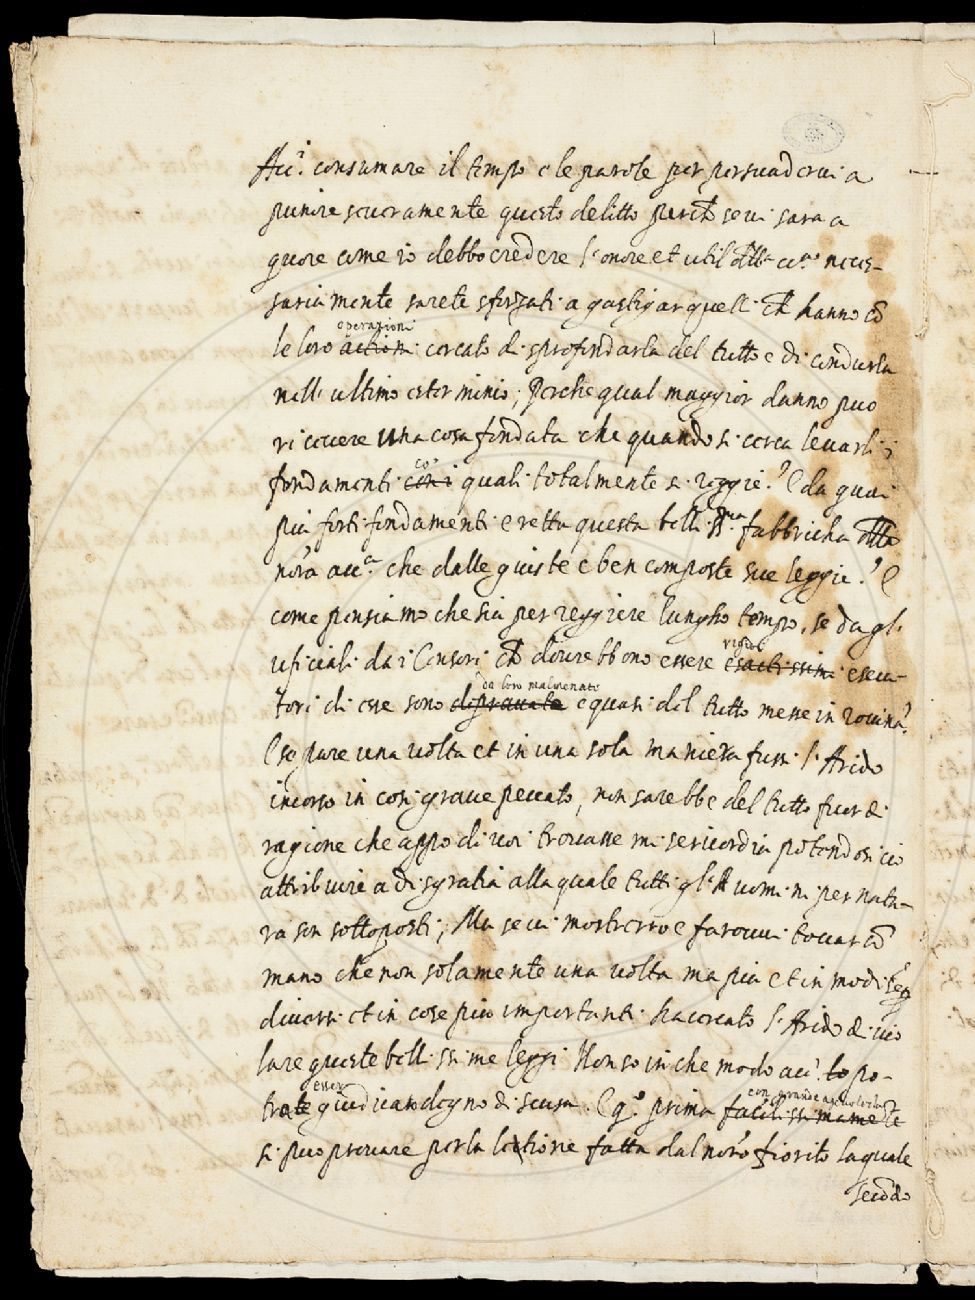 Acc.ⁱ consumare il tempo e le parole per persuadervi a
punire severamente questo delitto perchè se vi sara a
quore come io debbo credere l'onore et util della ac.ª neces-
sariamente sarete sforzati a gastigar quelli che hanno cō
operazioni
le loro actioni cercato di sprofondarla del tutto e di condurla
nell'ultimo esterminio; Perche qual maggior danno puo
ricevere una cosa fondata che quando si cerca levarli i
co'
fondamenti con i quali totalmente si reggie? E da quai
piu forti fondamenti eretta questa belliss.ma fabbricha della
nora acc.ª che dalle giuste e ben composte sue leggie? E
come pensiamo che sia per reggiere lungho tempo, se dagl'
rigidi
uficiali da i Censori che dovrebbono essere esactissimi esecu-
da loro malmenate
tori di esse sono depravate e quasi del tutto messe in rovina?
E se pure una volta et in una sola maniera fussi l'Arido
incorso in così grave peccato, non sarebbe del tutto fuor di
ragione che appo di voi trovasse misericordia potendosi ciò
attribuire a disgratia alla quale tutti gl'huomini per natu-
ra son sottoposti; Ma se vi mostrerro e farovvi toccar cō
mano che non solamente una volta ma piu et in modi
diversi et in cose piu importanti ha cercato l'Arido di vio
lare queste bellissime leggi Non so in che modo acc.ⁱ lo po-
esser
trate giudicar degno di scusa. E q.º prima facilissimamēte
con grande agevolezza
si puo provare per la lectione fatta dal noro fiorito la quale
secōdo